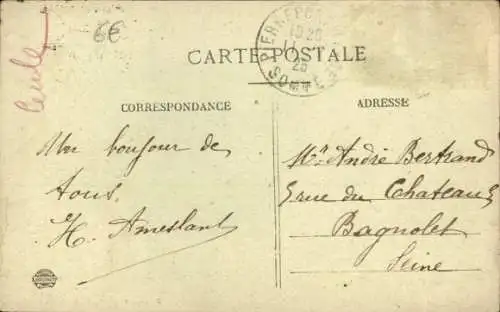 6€
CARTE POSTALE
CORRESPONDANCE
ADRESSE
SOMME
Un bonjour de
tous.
H. Ameslant
Mr André Bertrand
5 rue du Chateau 5
Bagnolet
Seine